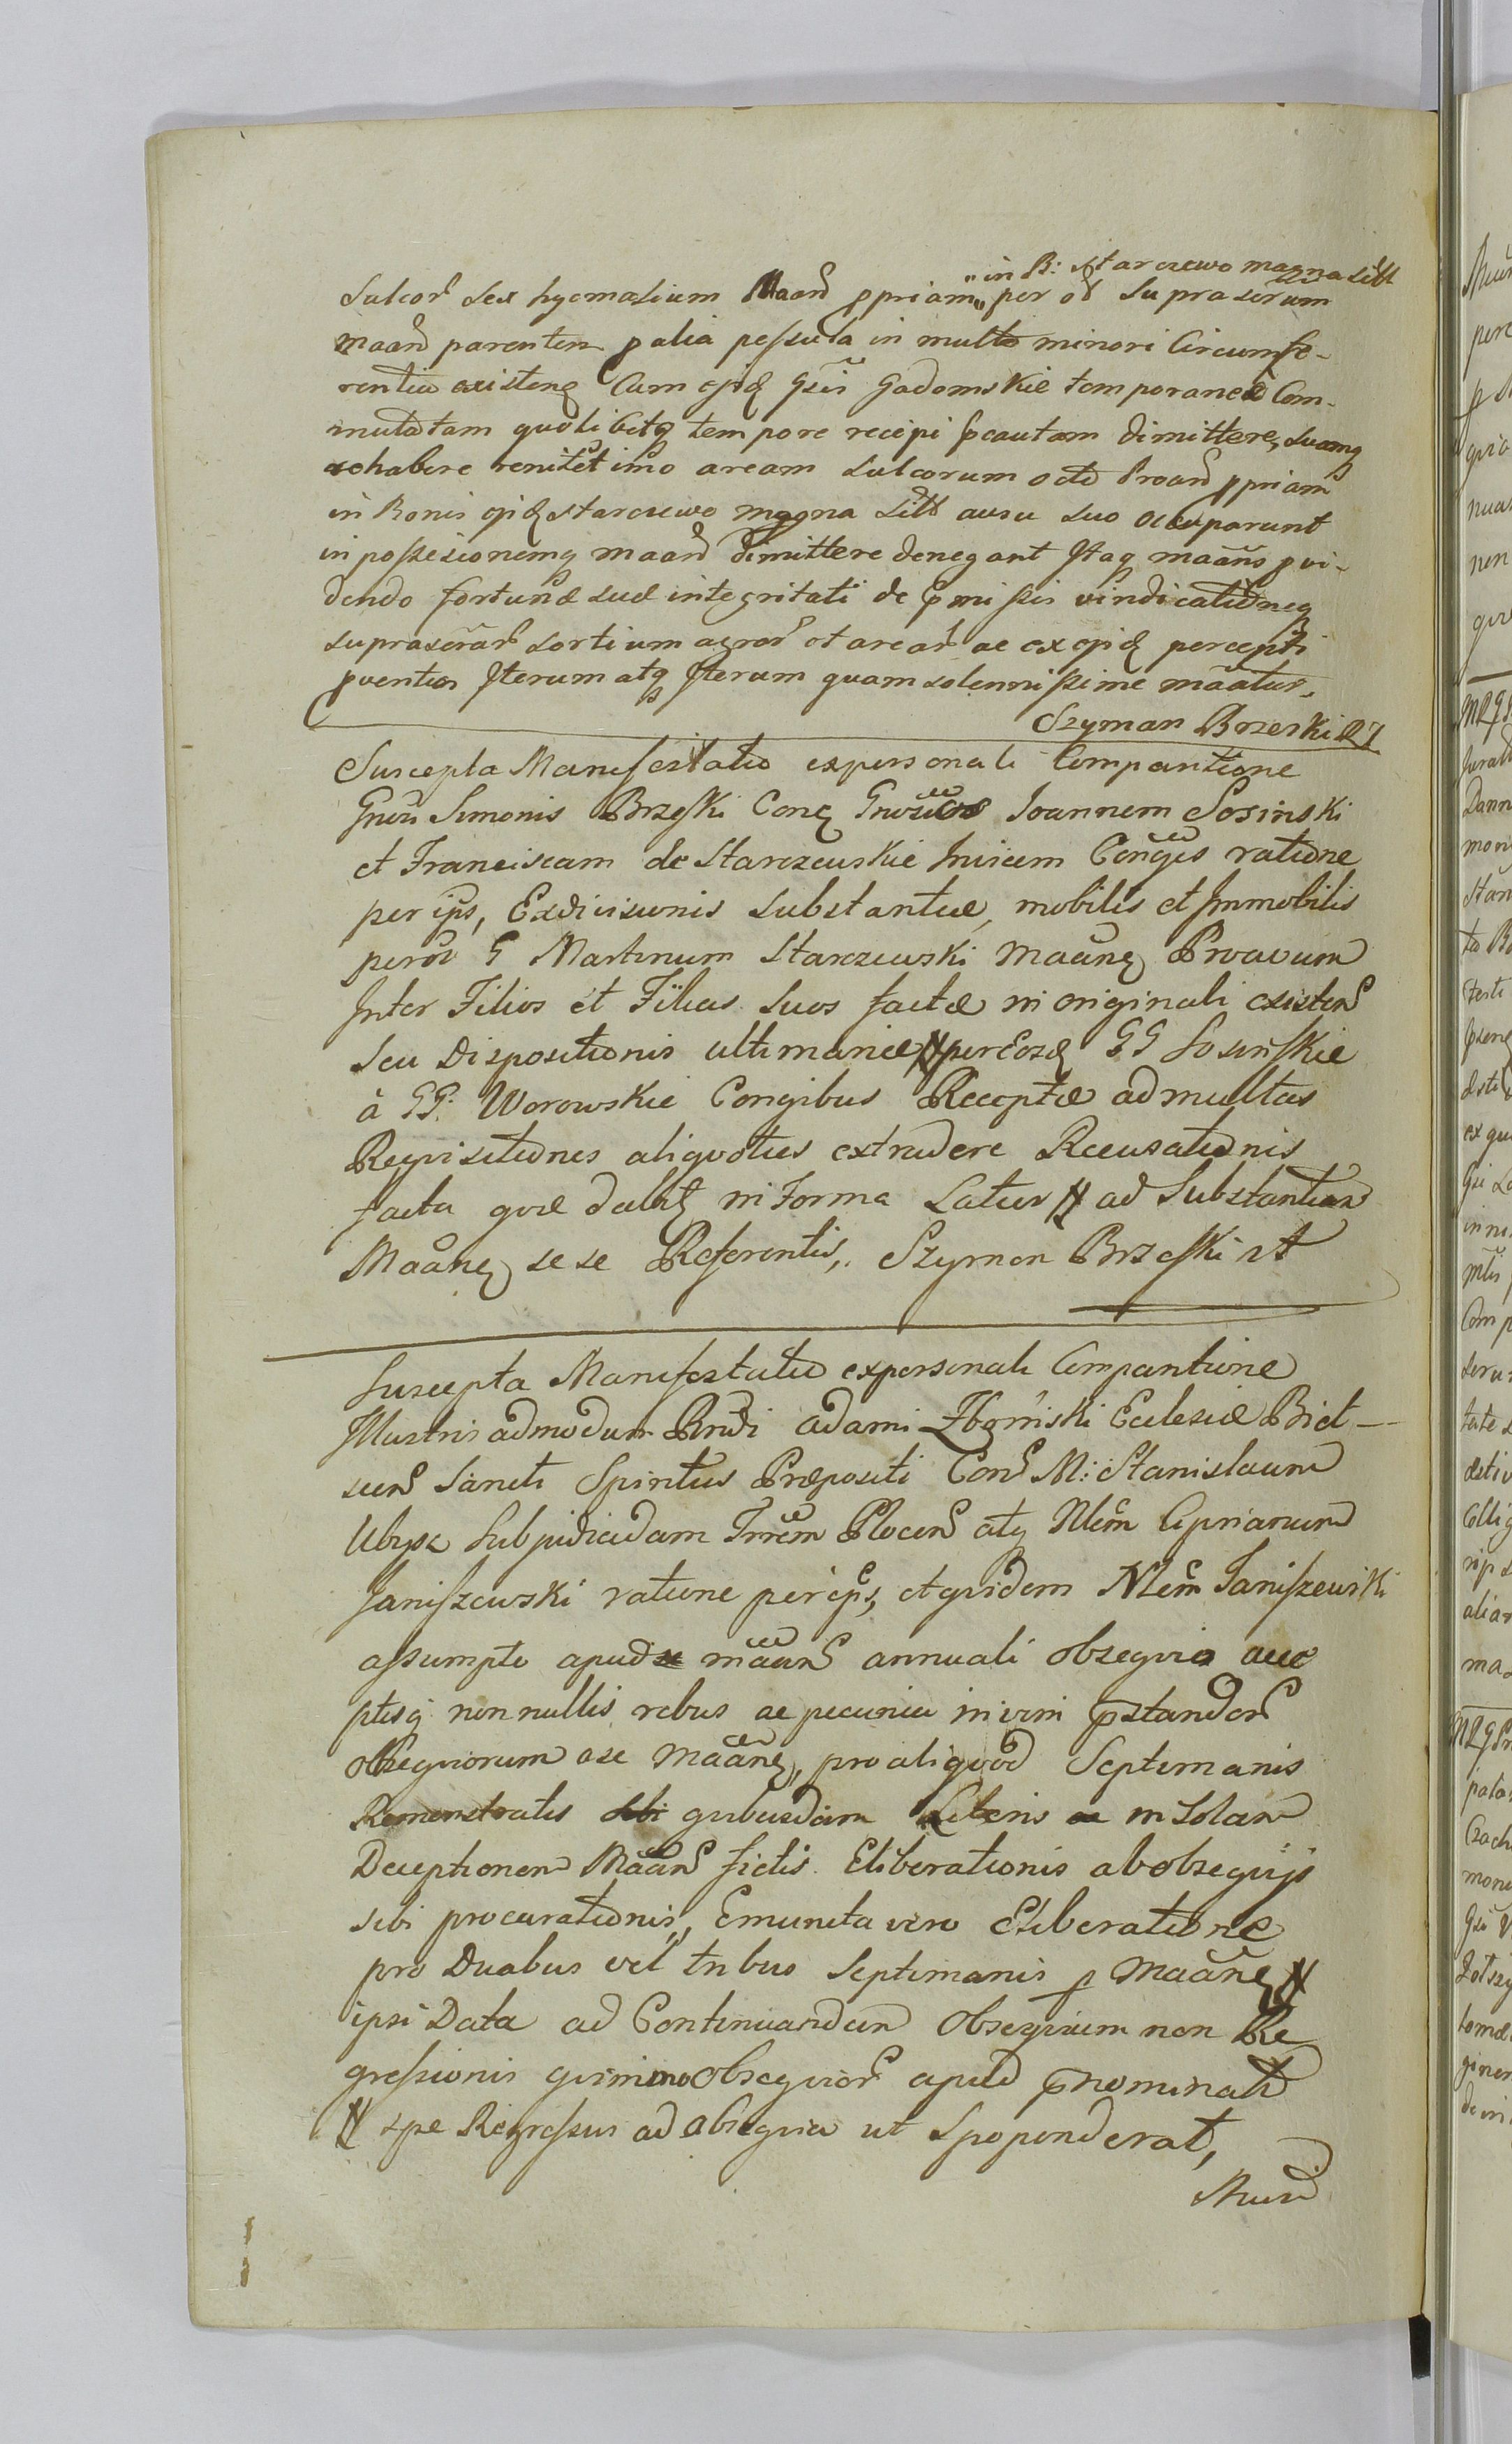 „in B: Starczewo magna sitt
Sulcor sex hyemalium Maand ppriam„ per od supraserum
Maand parentem p alia pessula in multo minori Circumfe-
rentia existenz Cum ejsd Gsis Gadomskie temporanea Com-
mutatam quolibetq tempore recipi pcautam dimittere, suamq
rehabere renitet imo aream sulcorum octo Proand ppriam
in Bonis ejsd Starczewo magna Sitt ausu suo occuparunt
in possesionemq maand dimittere denegant Itaq maans pvi-
dendo fortunæ suæ integritati de pmissis vindicationeq
suprascrar sortium agror et arear ac ex ejsd percepti
pventus Iterum atq Iterum quam solennissime maatur.
Szyman Brzeski
Suscepta Manifestatio expersonali Compantione
Gnosi Simonis Brzeski Conz Gnosos Joannem Sosinski
et Franciscam de Starczewskie Invicem Conges ratione
per ips, Exdivisionis substantiæ, mobilis et Immobilis
per od G Martinum Starczewski Maanz Proavum
Inter Filios et Filias suos factæ in originali existen
seu Dispositionis ultimariæ # per Eosd GG Sosinskie
à GG. Worowskie Congibus Receptæ ad multas
Requisitiones aliquoties extradere Recusationis
facta quæ dabit in Forma Latior # ad Substantiam
Maanz se se Referentis,. Szymon Brzeski
Suscepta Manifestatio expersonali Compantione
Illustris admodum Rndi Adami Zbominski Ecclesiæ Biel-
scen Sancti Spiritus Præpositi Con M: Stanislaum
Ubysz Subjudicadam Trrem Plocen atq Nlem Ciprianum
Janiszewski ratione per ips, et quidem Nlem Janiszewski
assumpto apud maan annuali obsequio acce
ptisq non nullis rebus ac pecunia in vim pstandor
obsequiorum a se Maanz, pro aliquod Septimanis
Remonstratis quibusdam Literis in solam
Deceptionem Maan fictis. Eliberationis ab obsequijs
sibi procurationis, Emunita vero Eliberatione
pro Duabus vel tribus Septimanis p Maanz #
ipsi Data ad Continuandum Obsequium non Re
gressionis quinimo Obsequior apud pnominatu
# spe Regressus ad obsequia ut spoponderat,